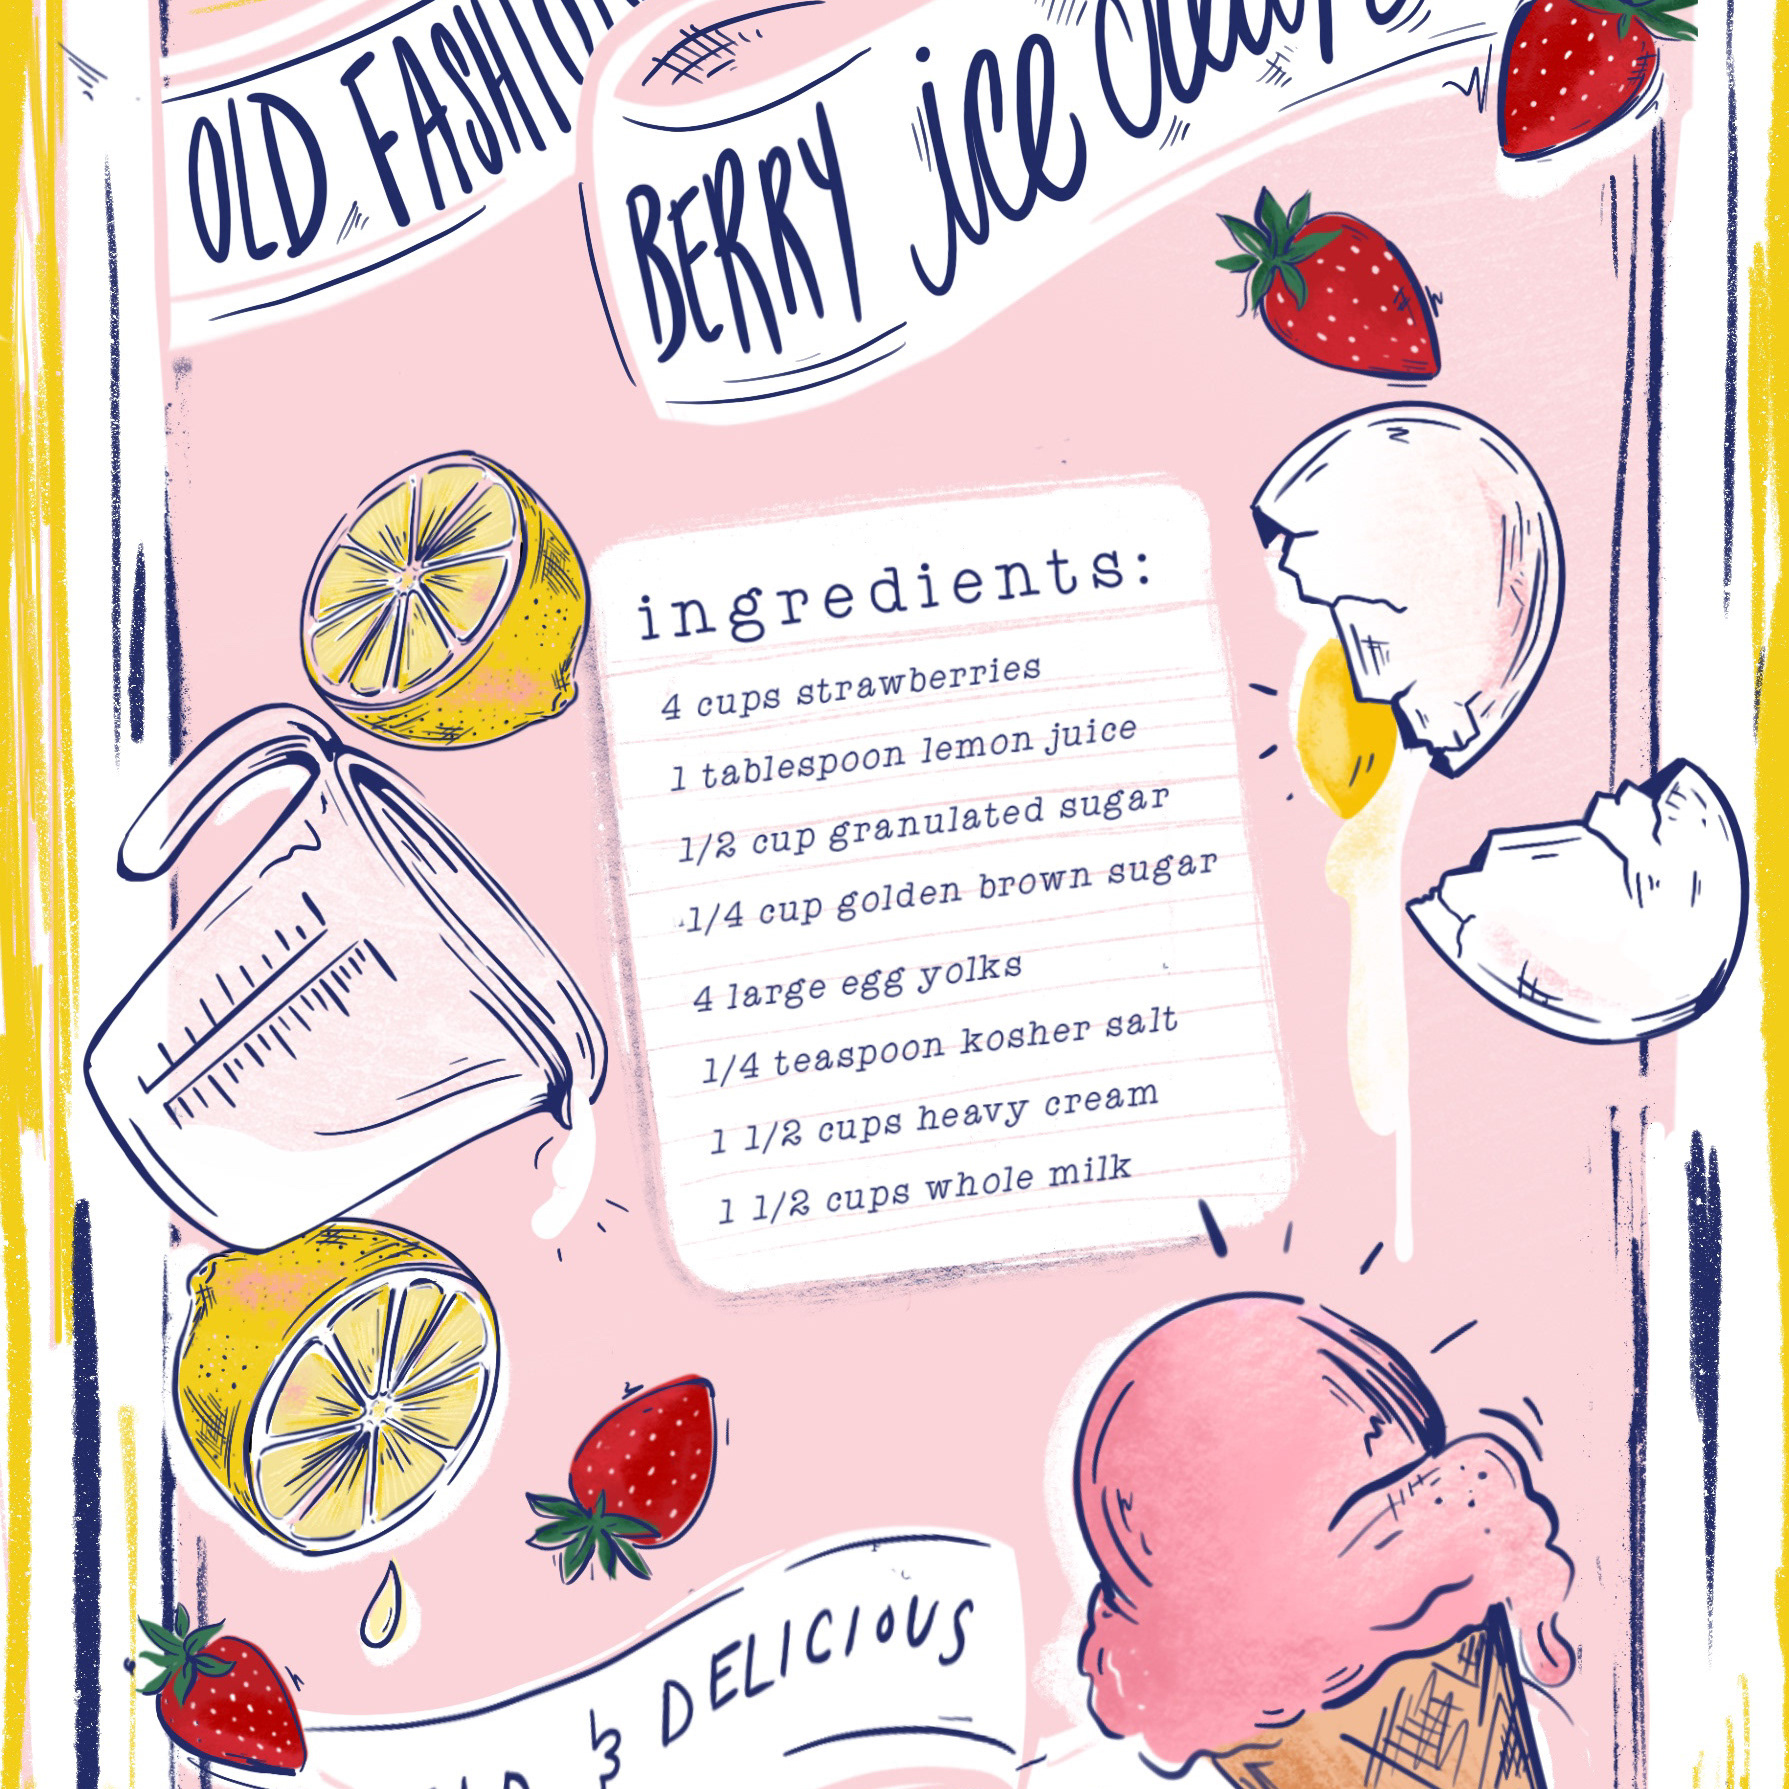 OLD
BERRY ice
ingredients:
4 cups strawberries
1 tablespoon lemon juice
1/2 cup granulated sugar
1/4 cup golden brown sugar
4 large egg yolks
1/4 teaspoon kosher salt
1 1/2 cups heavy cream
1 1/2 cups whole milk
& DELICIOUS